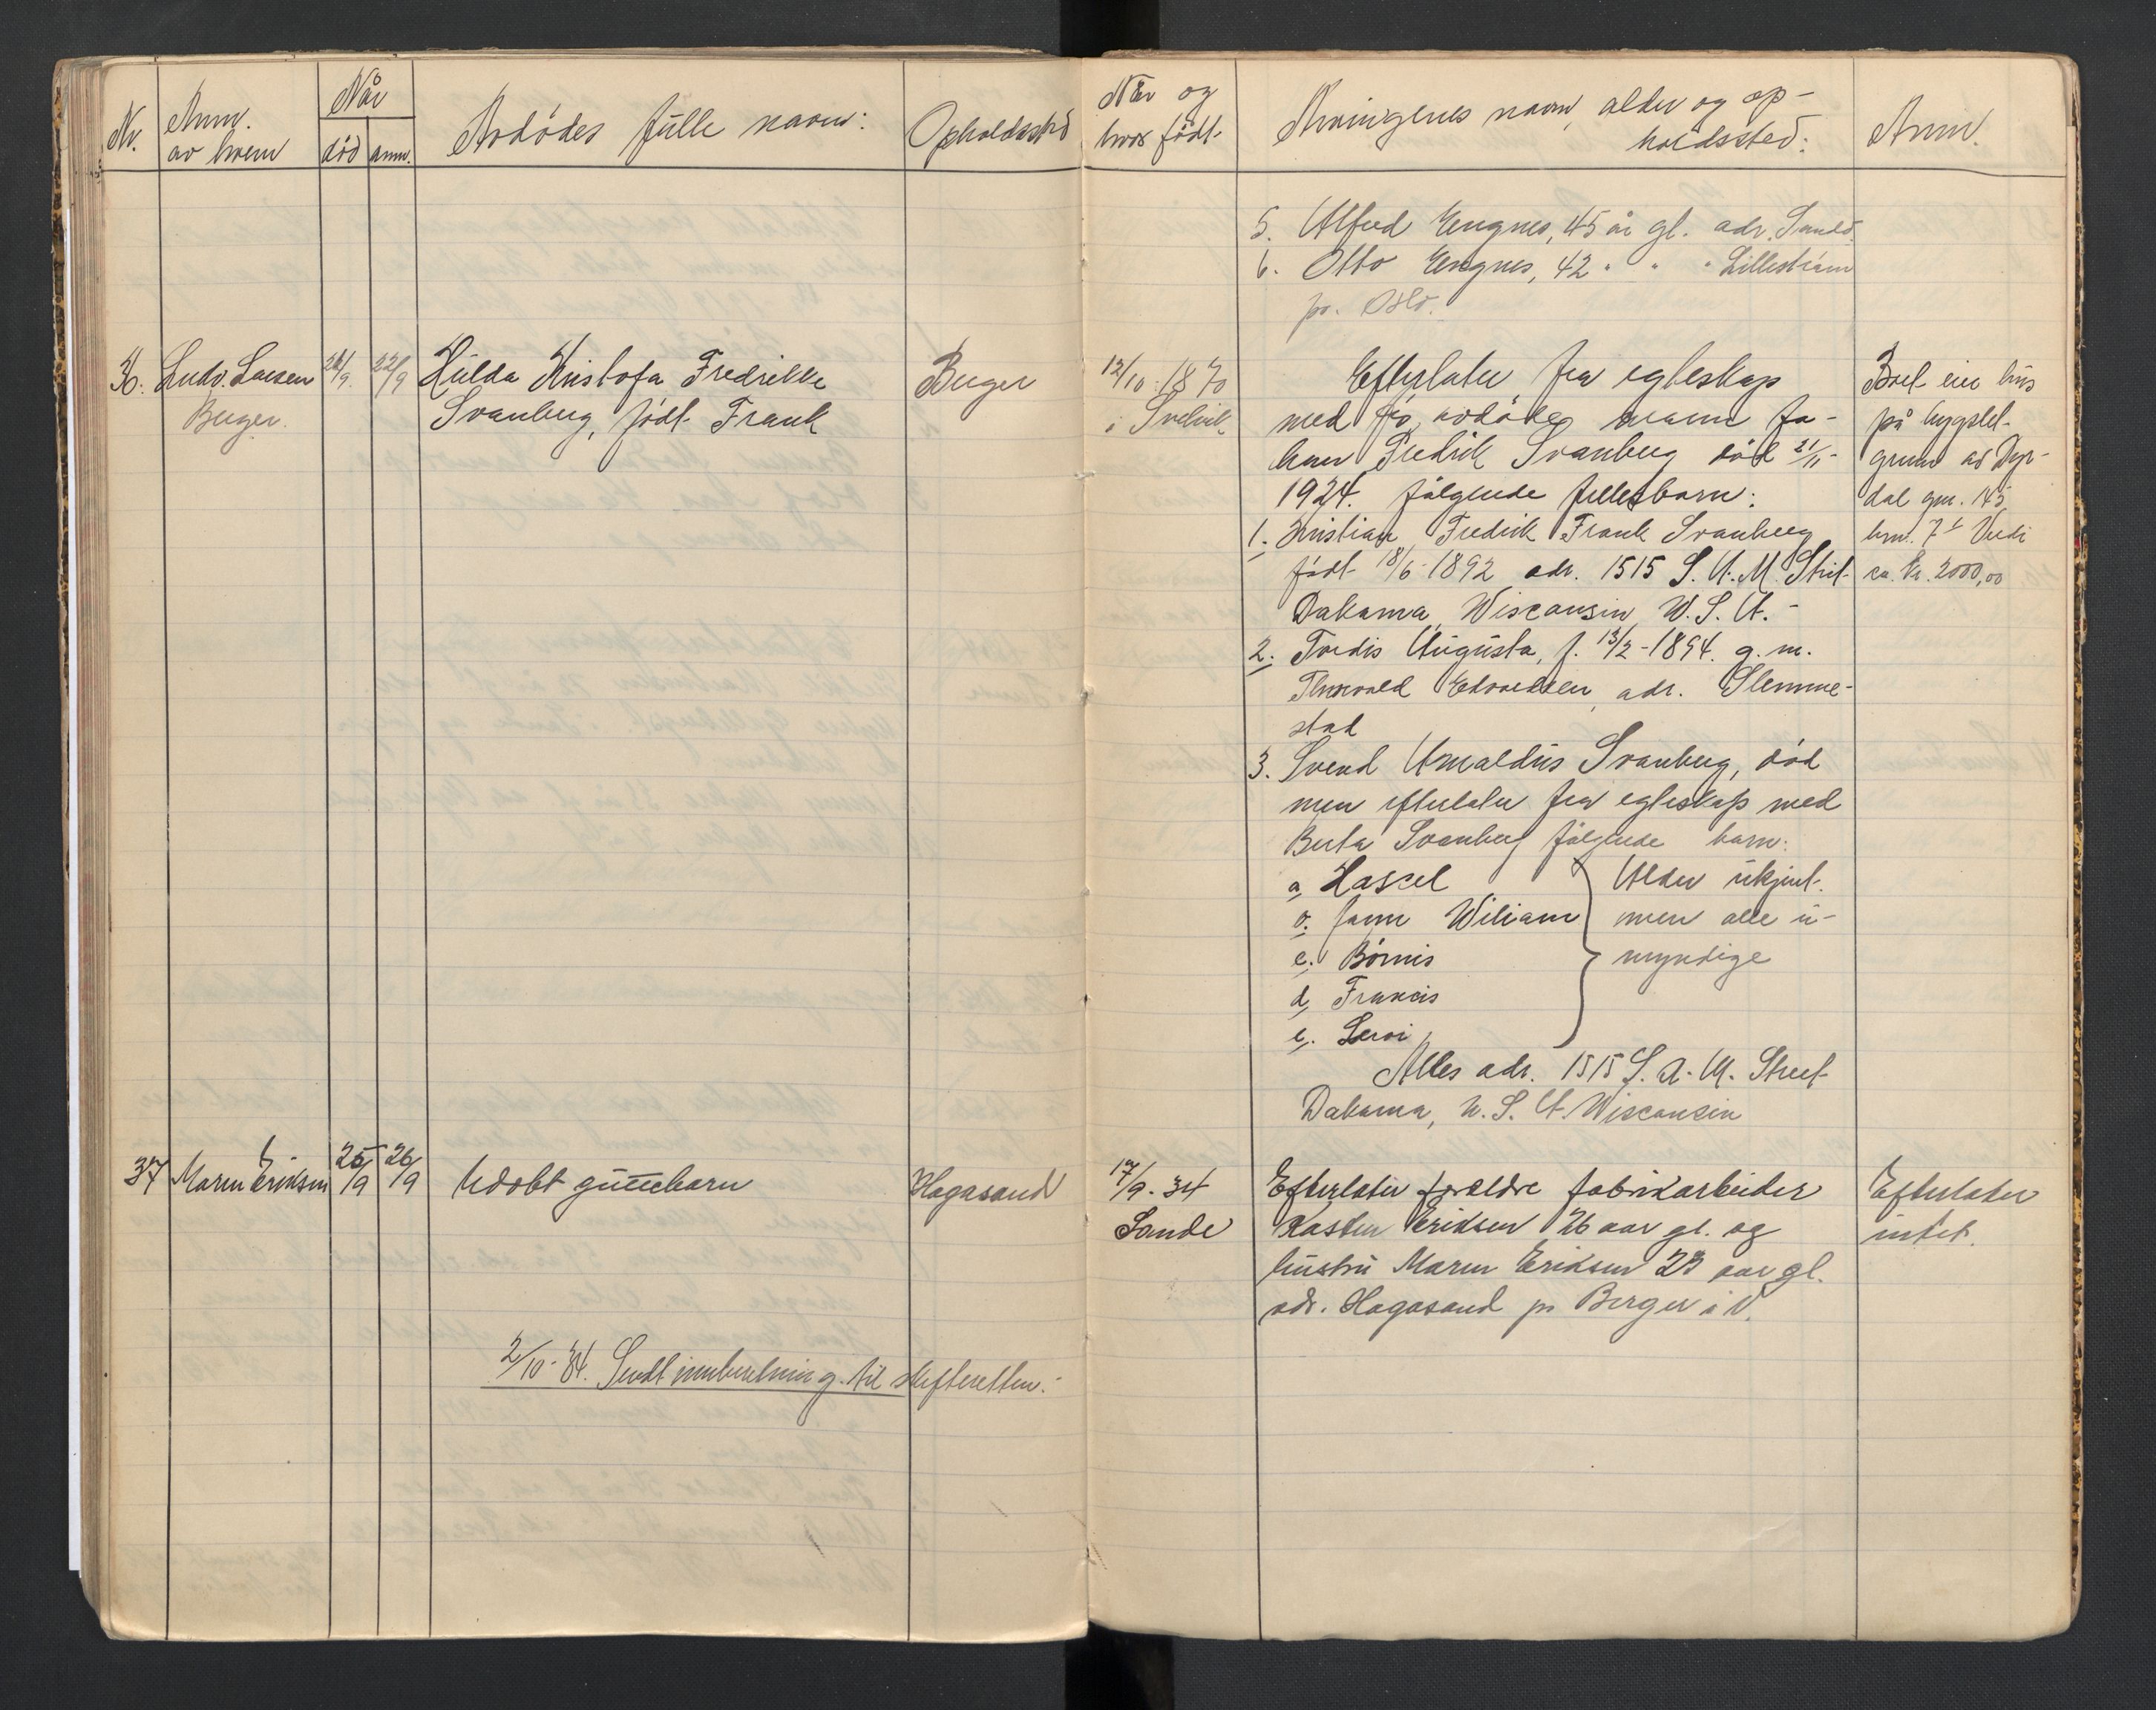 Nr.
Anm.
av hvem
Når
død anm.
Avdødes fulle navn:
Opholdssted
Når og
hvor født.
Arvingenes navn, alder og op-
holdssted:
Anm.
5. Alfred Engnes, 45 år gl. adr. Sande.
6. Otto Engnes, 42 " " " Lillestrøm
pr. Oslo.
36. Ludv. Larsen
Berger.
21/9. 22/9
Hulda Kristofa Fredrikke
Svanberg, født Frank
Berger
12/10-1870
i Svelvik
Efterlater fra egteskap
med før avdøde mann Jo-
han Fredrik Svanberg død 21/11-
1924. følgende fellesbarn:
1. Kristian Fredrik Frank Svanberg
født 18/6-1892 adr. 1515 S. A. M. Strit-
Dakama, Wisconsin, W. S. A. -
2. Tordis Augusta, f. 13/2-1894. g. m.
Thorvald Edvardsen, adr. Slemme-
stad
3. Svend Arnaldus Svanberg, død
men efterlater fra egteskap med
Berta Svanberg følgende barn:
a, Hascel
b. John Wiliam
c. Børnis
d, Francis
e. Leroi
Alder ukjent.
men alle u-
myndige
Alles adr. 1515 S. A. M. Street
Dakama, U. S. A. Wisconsin
Boet eier hus
på bygslet-
grunn av Dyr-
dal gnr. 145
brn. 7 Verdi
ca. kr. 2000,00
37 Maren Eriksen
25/9 26/9
Udøbt guttebarn
Hagasand
17/9-34
Sande
Efterlater forældre fabrikarbeider
Karsten Eriksen 26 aar gl. og
hustru Maren Eriksen 23 aar gl.
adr. Hagasand pr Berger i V.
Efterlater
intet.
2/10-34. Sendt innberetning. til skifteretten.-